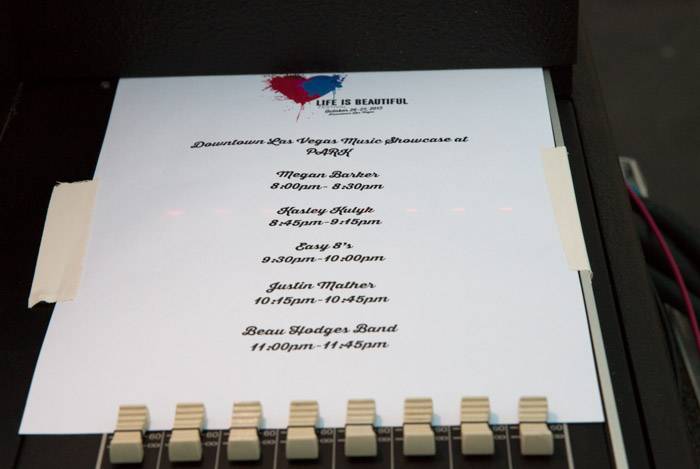 LIFE IS BEAUTIFUL
October 26-27, 2013
Downtown Las Vegas
Downtown Las Vegas Music Showcase at
PARK
Megan Barker
8:00pm- 8:30pm
Hasley Hulyk
8:45pm-9:15pm
Easy 8's
9:30pm-10:00pm
Justin Mather
10:15pm-10:45pm
Beau Hodges Band
11:00pm-11:45pm
60
60
60
60
60
60
60
60